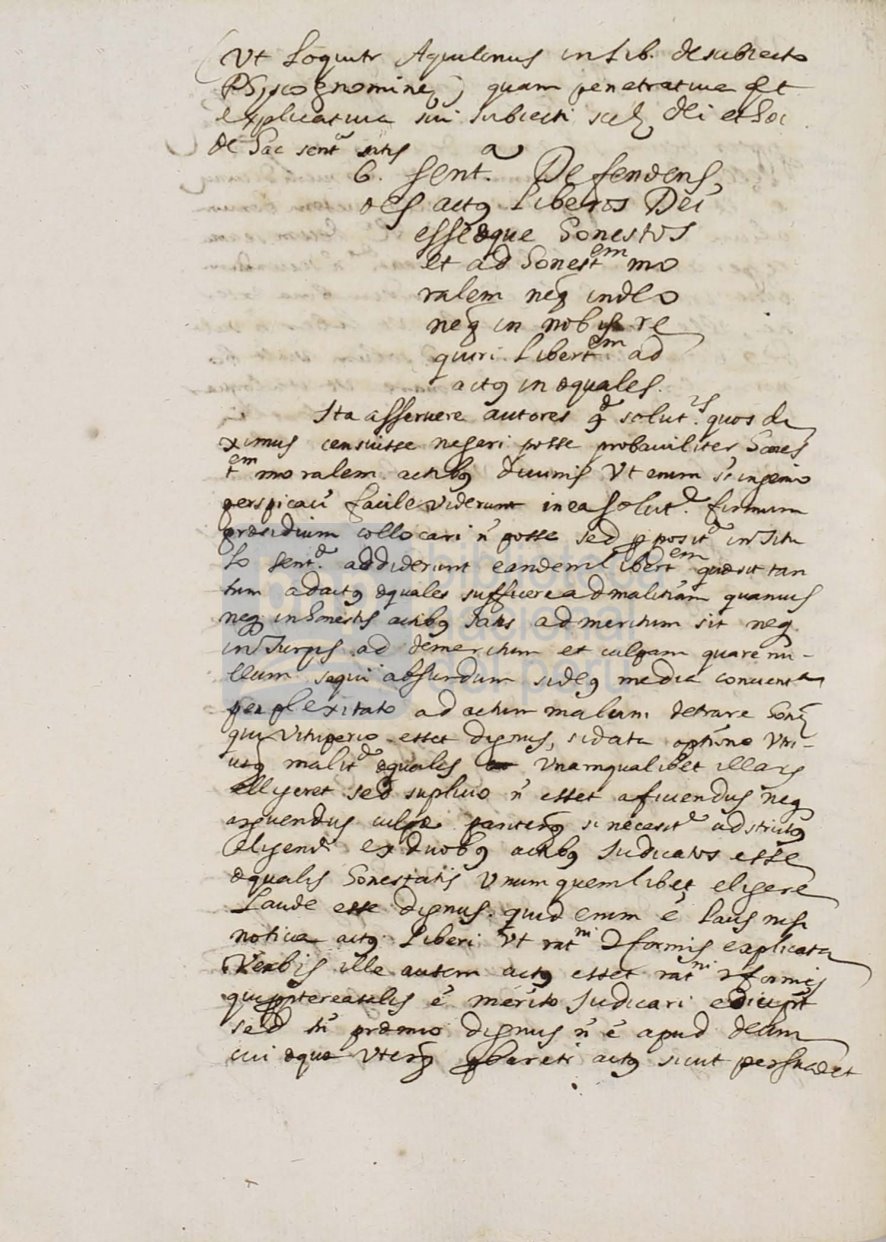 (Vt loquitr Aquilonus in lib. de subiecto
Physcognomine) quam penetratiua est
explicatiua sui subiecti Dei et hoc
de hac sent.ª satis
6. sent.ª Defendens
oes actq liberos Dei
esse æque honestos
et ad honest.em mo
ralem neq in deo
neq in nobis re
quiri libert.em ad
actq inæquales.
Ita asseruere autores solut.is quos di
ximus censuisse negari posse probauiliter hones
t.em moralem actibq diuinis Vt enim ingenio
perspicaci facile viderunt in ea solut.e firmum
præsidium collocari ñ posse sed in titu
lo sent.ª addiderunt eandem libert.em quæ sit tan
tum ad actq æquales sufficere ad malitiam quamuis
neq in honestis actibq satis ad meritum sit neq
in turpis ad demeritum et culpam quare nu-
llum sequi absurdum media
perplexitate ad actum malum
qui vituperio esset dignus, si data optione vtri-
usq malit.e æqualis vnamqualibet illarũ
elligeret sed suplicio ñ esset aficiendus neq
arguendus culpæ si necesit.e adstrictq
eligendi ex duobq actibq iudicatos esse
æqualis honestatis vnumquemlibet eligere
laude esse dignus. quid enim ẽ laus nisi
notitia actq liberi vt rat.ni conformis explicata
verbis ille autem actq esset rat.ni conformis
talis ẽ merito iudicari
sed præmio dignus ñ ẽ apud deum
cui æque vterq actq sicut persuadet